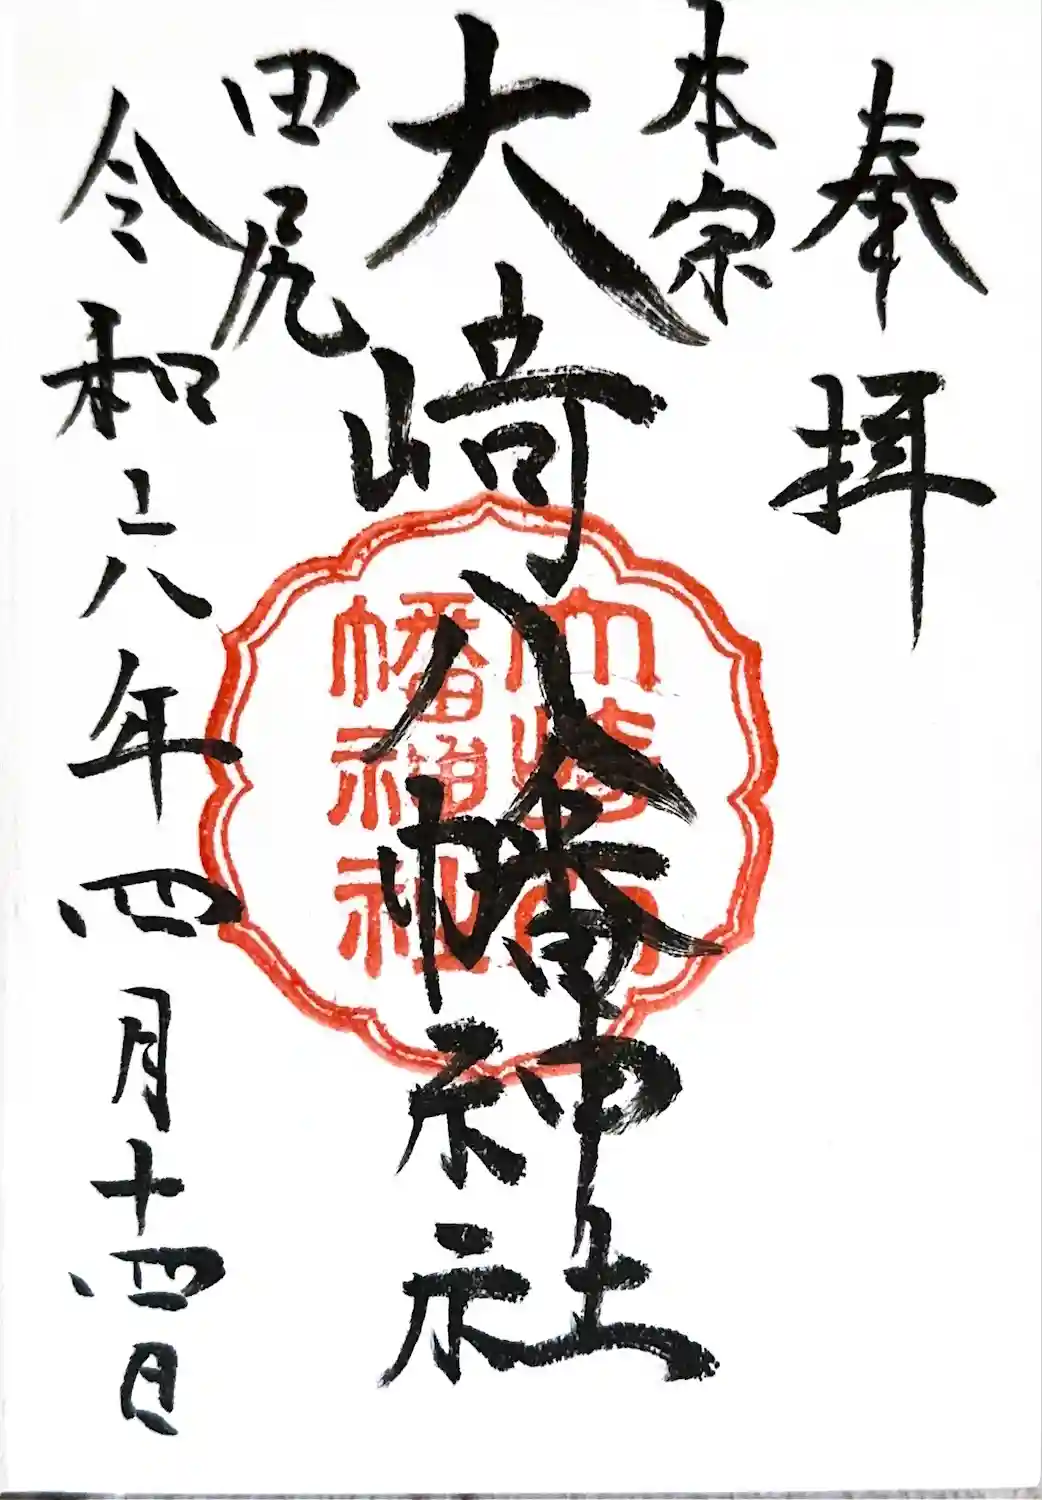 奉拝
本宗
大崎八幡神社
田尻
令和六年四月十四日
大崎八
幡神社